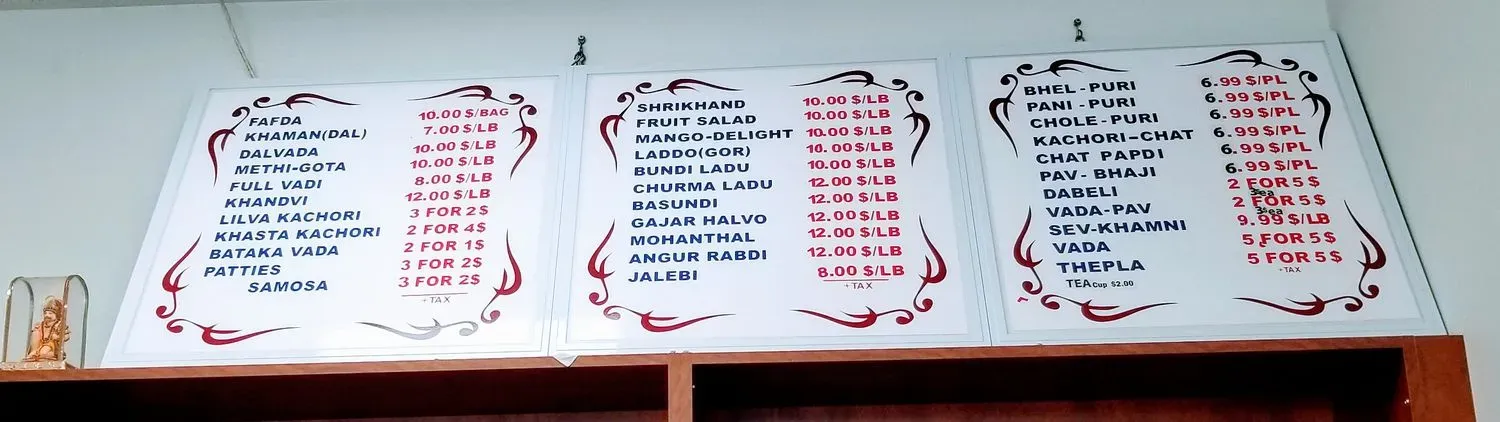 FAFDA 10.00 $/BAG
KHAMAN(DAL) 7.00 $/LB
DALVADA 10.00 $/LB
METHI-GOTA 10.00 $/LB
FULL VADI 8.00 $/LB
KHANDVI 12.00 $/LB
LILVA KACHORI 3 FOR 2$
KHASTA KACHORI 2 FOR 4$
BATAKA VADA 2 FOR 1$
PATTIES 3 FOR 2$
SAMOSA 3 FOR 2$
+TAX
SHRIKHAND 10.00 $/LB
FRUIT SALAD 10.00 $/LB
MANGO-DELIGHT 10.00 $/LB
LADDO(GOR) 10.00 $/LB
BUNDI LADU 10.00 $/LB
CHURMA LADU 12.00 $/LB
BASUNDI 12.00 $/LB
GAJAR HALVO 12.00 $/LB
MOHANTHAL 12.00 $/LB
ANGUR RABDI 12.00 $/LB
JALEBI 8.00 $/LB
+TAX
BHEL-PURI 6.99 $/PL
PANI-PURI 6.99 $/PL
CHOLE-PURI 6.99 $/PL
KACHORI-CHAT 6.99 $/PL
CHAT PAPDI 6.99 $/PL
PAV-BHAJI 6.99 $/PL
DABELI 2 FOR 5$
3$ea
VADA-PAV 2 FOR 5$
3$ea
SEV-KHAMNI 9.99 $/LB
VADA 5 FOR 5$
THEPLA 5 FOR 5$
+TAX
TEA Cup $2.00